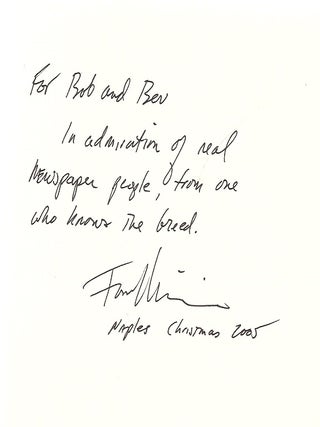 For Bob and Bev
In admiration of real
Newspaper people, from one
who knows the breed.
Naples Christmas 2005